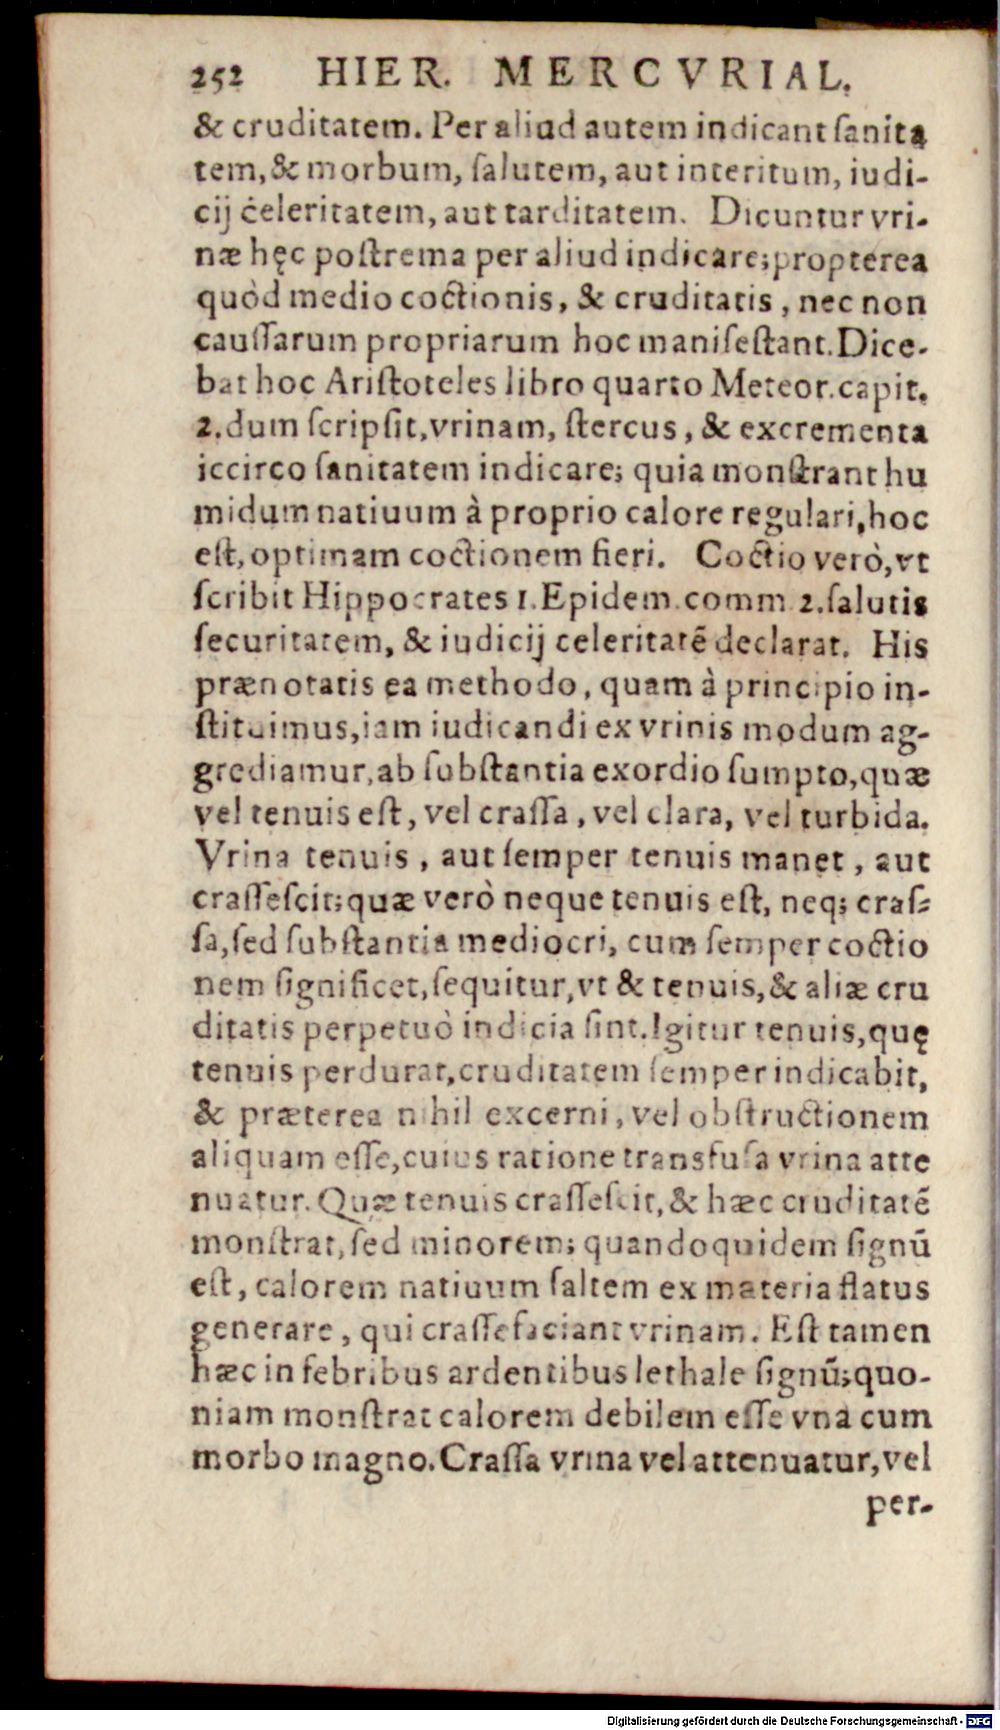 252 HIER. MERCVRIAL.
& cruditatem. Per aliud autem indicant ſanita
tem, & morbum, ſalutem, aut interitum, iudi-
cij celeritatem, aut tarditatem. Dicuntur vri-
næ hęc poſtrema per aliud indicare; propterea
quòd medio coctionis, & cruditatis, nec non
cauſſarum propriarum hoc manifeſtant. Dice-
bat hoc Ariſtoteles libro quarto Meteor. capit.
2. dum ſcripſit, vrinam, ſtercus, & excrementa
iccirco ſanitatem indicare; quia monſtrant hu
midum natiuum à proprio calore regulari, hoc
eſt, optimam coctionem fieri. Coctio verò, vt
ſcribit Hippocrates 1. Epidem. comm. 2. ſalutis
ſecuritatem, & iudicij celeritatē declarat. His
prænotatis ea methodo, quam à principio in-
ſtituimus, iam iudicandi ex vrinis modum ag-
grediamur, ab ſubſtantia exordio ſumpto, quæ
vel tenuis eſt, vel craſſa, vel clara, vel turbida.
Vrina tenuis, aut ſemper tenuis manet, aut
craſſeſcit; quæ verò neque tenuis eſt, neq; craſ-
ſa, ſed ſubſtantia mediocri, cum ſemper coctio
nem ſignificet, ſequitur, vt & tenuis, & aliæ cru
ditatis perpetuò indicia ſint. Igitur tenuis, quę
tenuis perdurat, cruditatem ſemper indicabit,
& præterea nihil excerni, vel obſtructionem
aliquam eſſe, cuius ratione transfuſa vrina atte
nuatur. Quæ tenuis craſſeſcit, & hæc cruditatē
monſtrat, ſed minorem; quandoquidem ſignū
eſt, calorem natiuum ſaltem ex materia flatus
generare, qui craſſefaciant vrinam. Eſt tamen
hæc in febribus ardentibus lethale ſignū; quo-
niam monſtrat calorem debilem eſſe vna cum
morbo magno. Craſſa vrina vel attenuatur, vel
per-
Digitalisierung gefördert durch die Deutsche Forschungsgemeinschaft - DFG